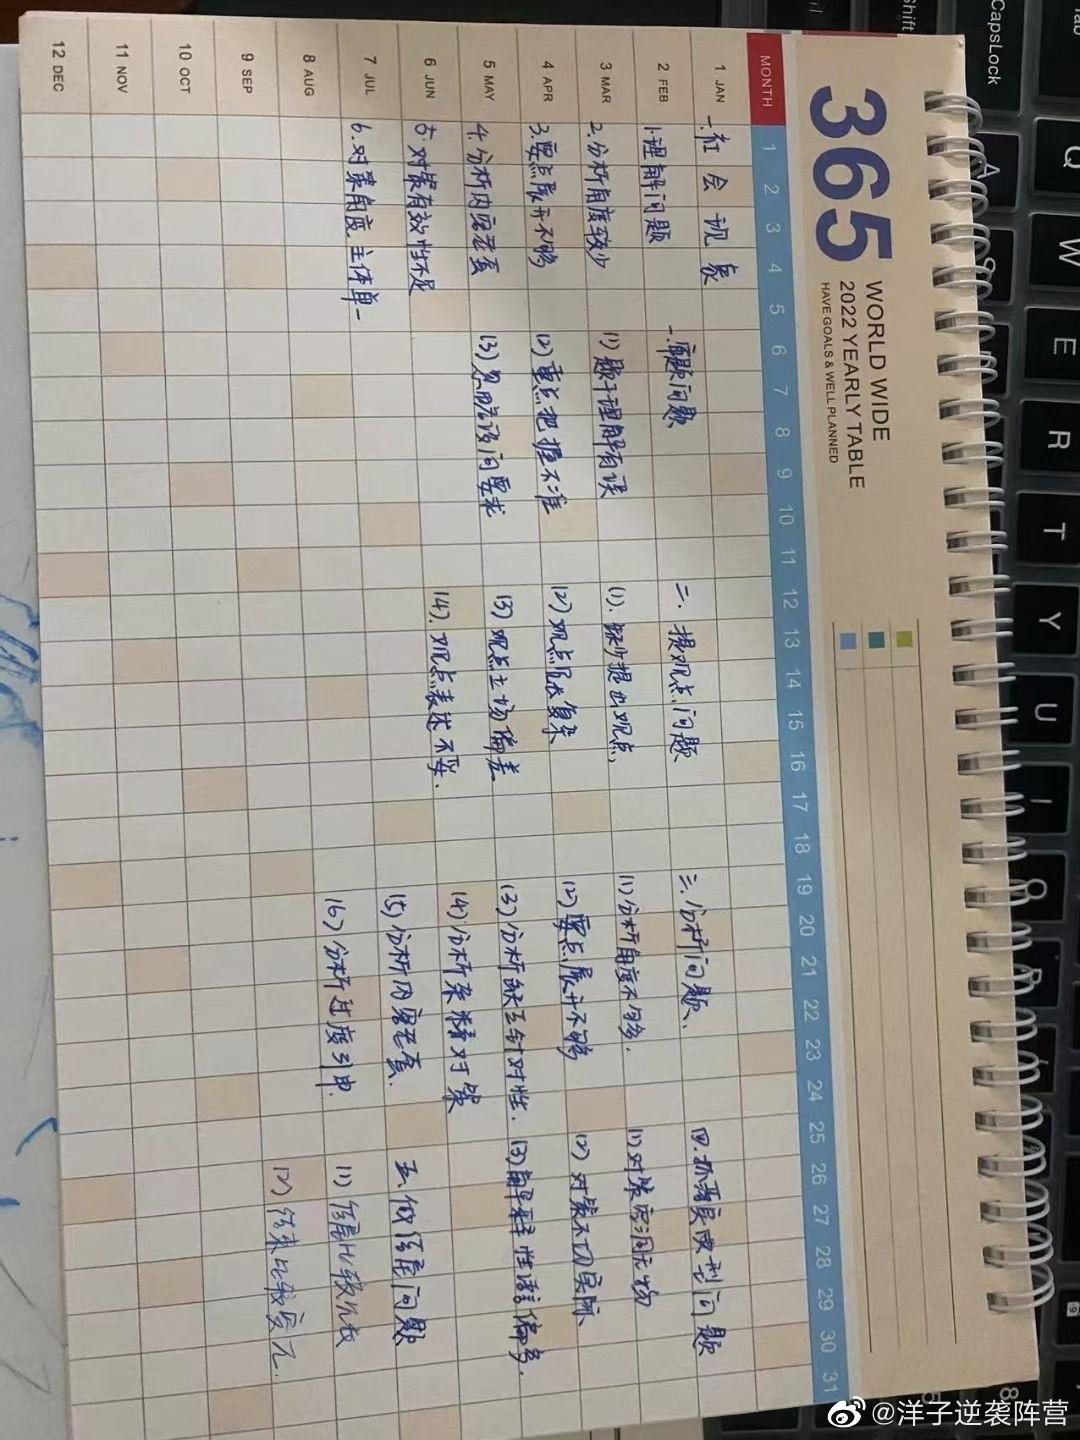 365
WORLD WIDE
2022 YEARLY TABLE
HAVE GOALS & WELL PLANNED
MONTH 1 2 3 4 5 6 7 8 9 10 11 12 13 14 15 16 17 18 19 20 21 22 23 24 25 26 27 28 29 30 31
1 JAN
2 FEB
3 MAR
4 APR
5 MAY
6 JUN
7 JUL
8 AUG
9 SEP
10 OCT
11 NOV
12 DEC
一.社会现象
1.理解问题
2.分析角度较少
3.要点展开不够
4.分析内容老套
5.对策有效性不足
6.对策角度.主体单一
一.审题问题
(1)题干理解有误
(2)重点把握不准
(3)忽视设问要求
二.提观点问题
(1).缺少提出观点,
(2)观点复杂
(3)观点立场偏差
(4).观点表述不妥.
三.分析问题、
(1)分析角度不够.
(2)要点展开不够
(3)分析缺乏针对性.
(4)分析杂糅对策
(5)分析内容老套.
(6)分析过度引申.
四.抓落实或问题
(1)对策空洞无物
(2)对策不切实际、
(3)性语言偏多.
五.问题
(1)
(2)结束比较
Tab
CapsLock
Shift
Q
W
E
R
T
Y
U
I
O
A
@洋子逆袭阵营